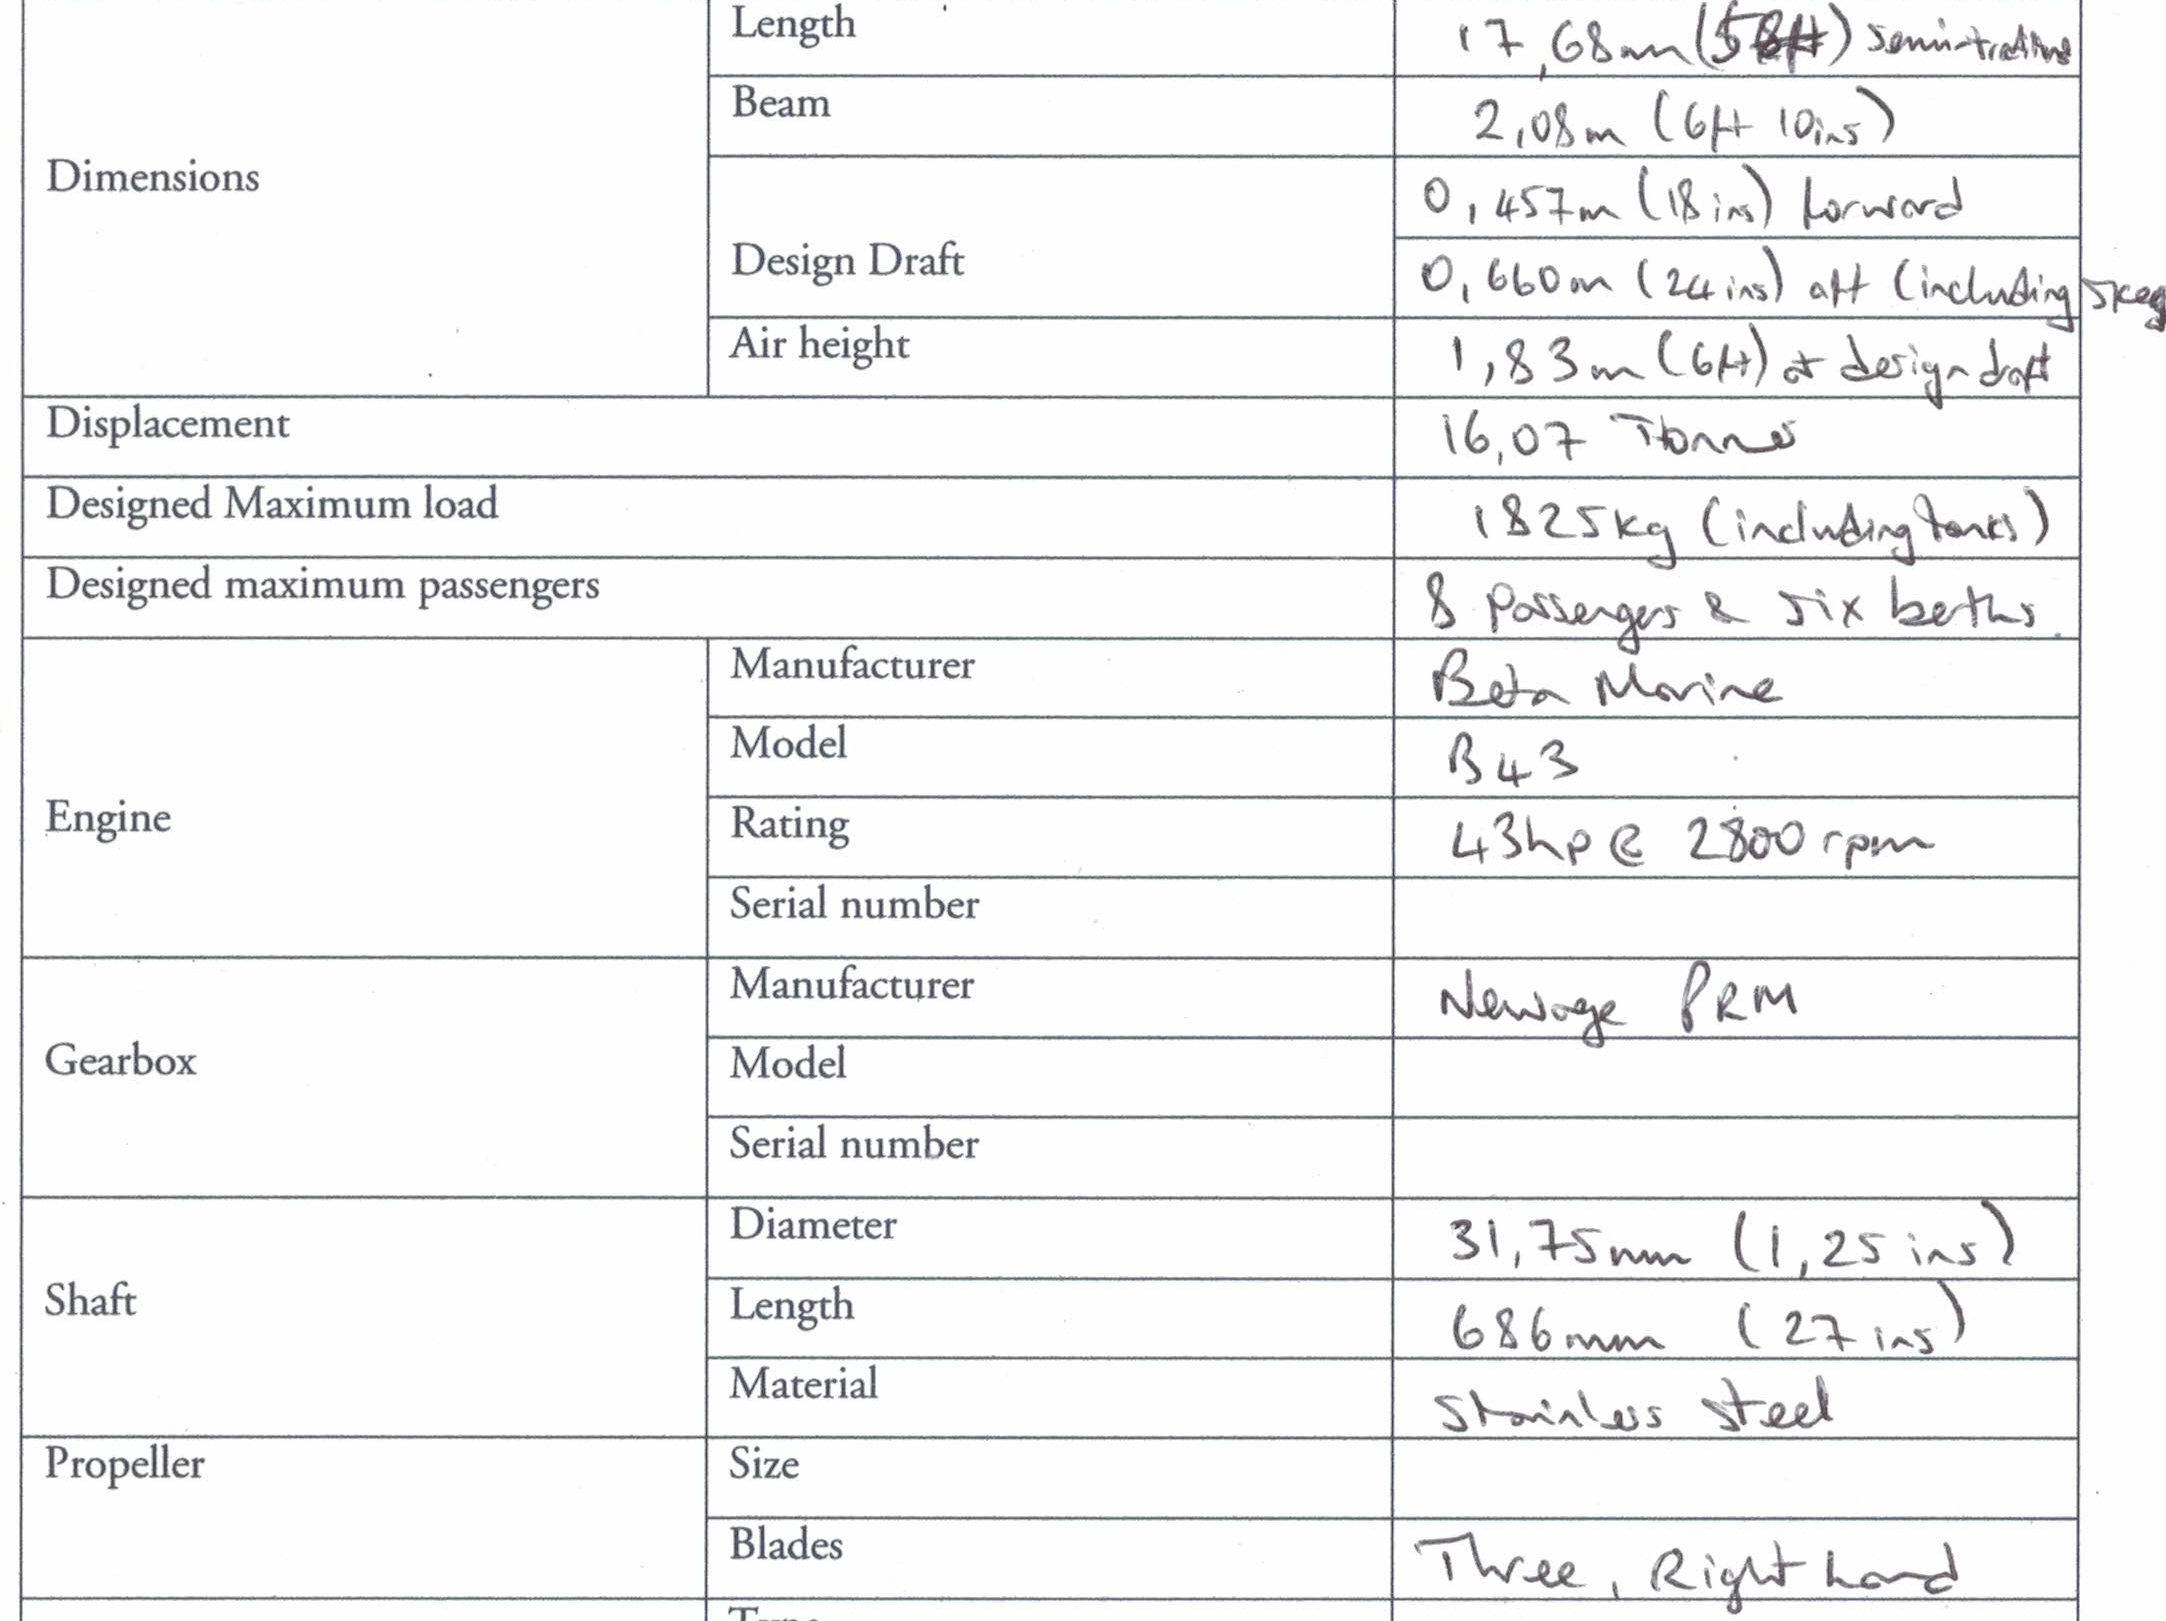 Length 17,68m (58ft) semi-trad
Beam 2,08m (6ft 10ins)
Dimensions
0,457m (18ins) forward
Design Draft
0,660m (24ins) aft (including skeg
Air height 1,83m (6ft) at design draft
Displacement 16,07 Tonnes
Designed Maximum load 1825kg (including tanks)
Designed maximum passengers 8 Passengers & six berths.
Manufacturer Beta Marine
Model B43
Engine
Rating 43hp @ 2800 rpm
Serial number
Manufacturer Newage PRM
Gearbox
Model
Serial number
Diameter 31,75mm (1,25 ins)
Shaft
Length 686mm (27 ins)
Material Stainless steel
Propeller
Size
Blades Three, Right hand
Type